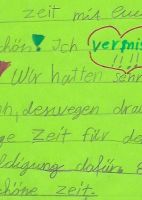 zeit mit euch
schön! Ich vermis
!!!
Wir hatten sehr
h, deswegen drau
ge Zeit für de
ldigung dafür, d
chöne zeit.